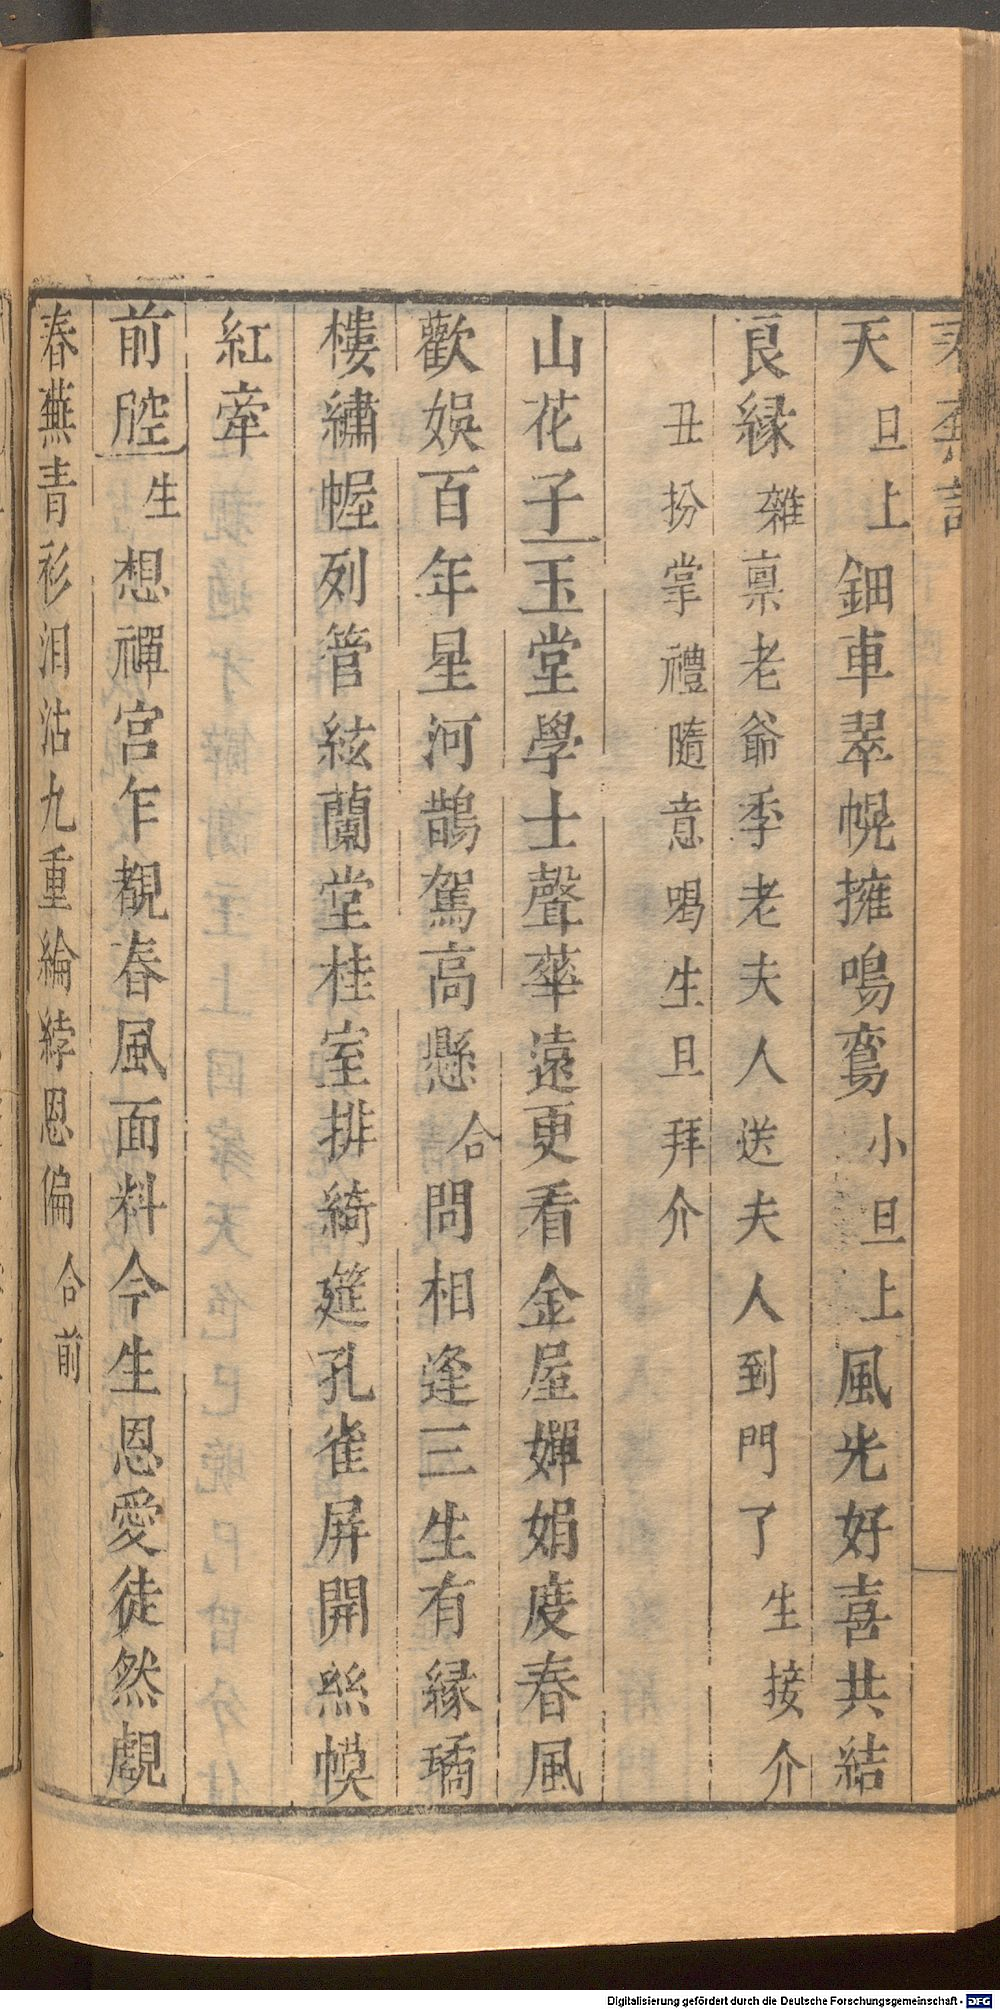 春蕪記
天旦上鈿車翠幌擁鳴鸞小旦上風光好喜共結
良緣雜禀老爺季老夫人送夫人到門了生接介
丑扮掌禮隨意喝生旦拜介
山花子玉堂學士聲華遠更看金屋嬋娟度春風
歡娛百年星河鵲駕高懸合問相逢三生有緣璚
樓繡幄列管絃蘭堂桂室排綺筵孔雀屏開絲幙
紅牽
前腔生想禪宮乍覩春風面料今生恩愛徒然覷
春蕪青衫泪沾九重綸綍恩偏合前
Digitalisierung gefördert durch die Deutsche Forschungsgemeinschaft - DFG